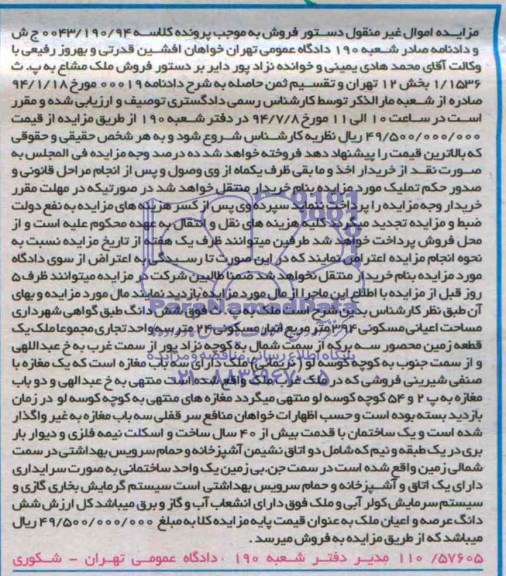 مزایده اموال غیر منقول دستور فروش به موجب پرونده کلاسه ۰۰۴۳/۱۹۰/۹۴ ج ش
و دادنامه صادر شعبه ۱۹۰ دادگاه عمومی تهران خواهان افشین قدرتی و بهروز رفیعی با
وکالت آقای محمد هادی یمینی و خوانده نژاد پور دایر بر دستور فروش ملک مشاع به پ. ث
۱/۱۵۳۶ بخش ۱۲ تهران و تقسیم ثمن حاصله به شرح دادنامه ۰۰۰۱۹ مورخ ۹۴/۱/۱۸
صادره از شعبه مارالذکر توسط کارشناس رسمی دادگستری توصیف و ارزیابی شده و مقرر
است در ساعت ۱۰ الی ۱۱ مورخ ۹۴/۷/۸ در دفتر شعبه ۱۹۰ از طریق مزایده از قیمت
۴۹/۵۰۰/۰۰۰/۰۰۰ ریال نظریه کارشناس شروع شود و به هر شخص حقیقی و حقوقی
که بالاترین قیمت را پیشنهاد دهد فروخته خواهد شد ده درصد وجه مزایده فی المجلس به
صورت نقد از خریدار اخذ و ما بقی ظرف یکماه از وی وصول و پس از انجام مراحل قانونی و
صدور حکم تملیک مورد مزایده بنام خریدار منتقل خواهد شد در صورتیکه در مهلت مقرر
خریدار وجه مزایده را پرداخت ننماید سپرده وی پس از کسر هزینه های مزایده به نفع دولت
ضبط و مزایده تجدید میگردد کلیه هزینه های نقل و انتقال به عهده محکوم علیه است و از
محل فروش پرداخت خواهد شد طرفین میتوانند ظرف یک هفته از تاریخ مزایده نسبت به
نحوه انجام مزایده اعتراض نمایند که در این صورت تا رسیدگی به اعتراض از سوی دادگاه
مورد مزایده بنام خریدار منتقل نخواهد شد ضمنا طالبین شرکت در مزایده میتوانند ظرف ۵
روز قبل از مزایده با اطلاع این ماجرا از مال مورد مزایده بازدید نمایند مال مورد مزایده و بهای
آن طبق نظر کارشناس بدین شرح است ملک به پ ث فوق شش دانگ طبق گواهی شهرداری
مساحت اعیانی مسکونی ۳۹۴ متر مربع انبار مسکونی ۲۴ متر سه واحد تجاری مجموعا ملک یک
قطعه زمین محصور سه بر که از سمت شمال به کوچه نژاد پور از سمت غرب به خ عبداللهی
و از سمت جنوب به کوچه کوسه لو (نریمانی) ملک دارای سه باب مغازه است که یک مغازه با
صنفی شیرینی فروشی که در ملک غربی ملک واقع شده است منتهی به خ عبدالهی و دو باب
مغازه به پ ۲ و ۵۴ کوچه کوسه لو منتهی میگردد مغازه های منتهی به کوچه کوسه لو در زمان
بازدید بسته بوده است و حسب اظهارات خواهان منافع سر قفلی سه باب مغازه به غیر واگذار
شده است و یک ساختمان با قدمت بیش از ۴۰ سال ساخت و اسکلت نیمه فلزی و دیوار بار
بری در یک طبقه و نیم که شامل دو اتاق نشیمن آشپزخانه و حمام سرویس بهداشتی در سمت
شمالی زمین واقع شده است در سمت جن.بی زمین یک واحد ساختمانی به صورت سرایداری
دارای یک اتاق و آشپزخانه و حمام سرویس بهداشتی است سیستم گرمایش بخاری گازی و
سیستم سرمایش کولر آبی و ملک فوق دارای انشعاب آب و گاز و برق میباشد کل ارزش شش
دانگ عرصه و اعیان ملک به عنوان قیمت پایه مزایده کلا به مبلغ ۴۹/۵۰۰/۰۰۰/۰۰۰ ریال
میباشد که از طریق مزایده به فروش میرسد.
۱۱۰/۵۷۶۰۵ مدیر دفتر شعبه ۱۹۰ دادگاه عمومی تهران - شکوری
پایگاه اطلاع رسانی مناقصه و مزایده